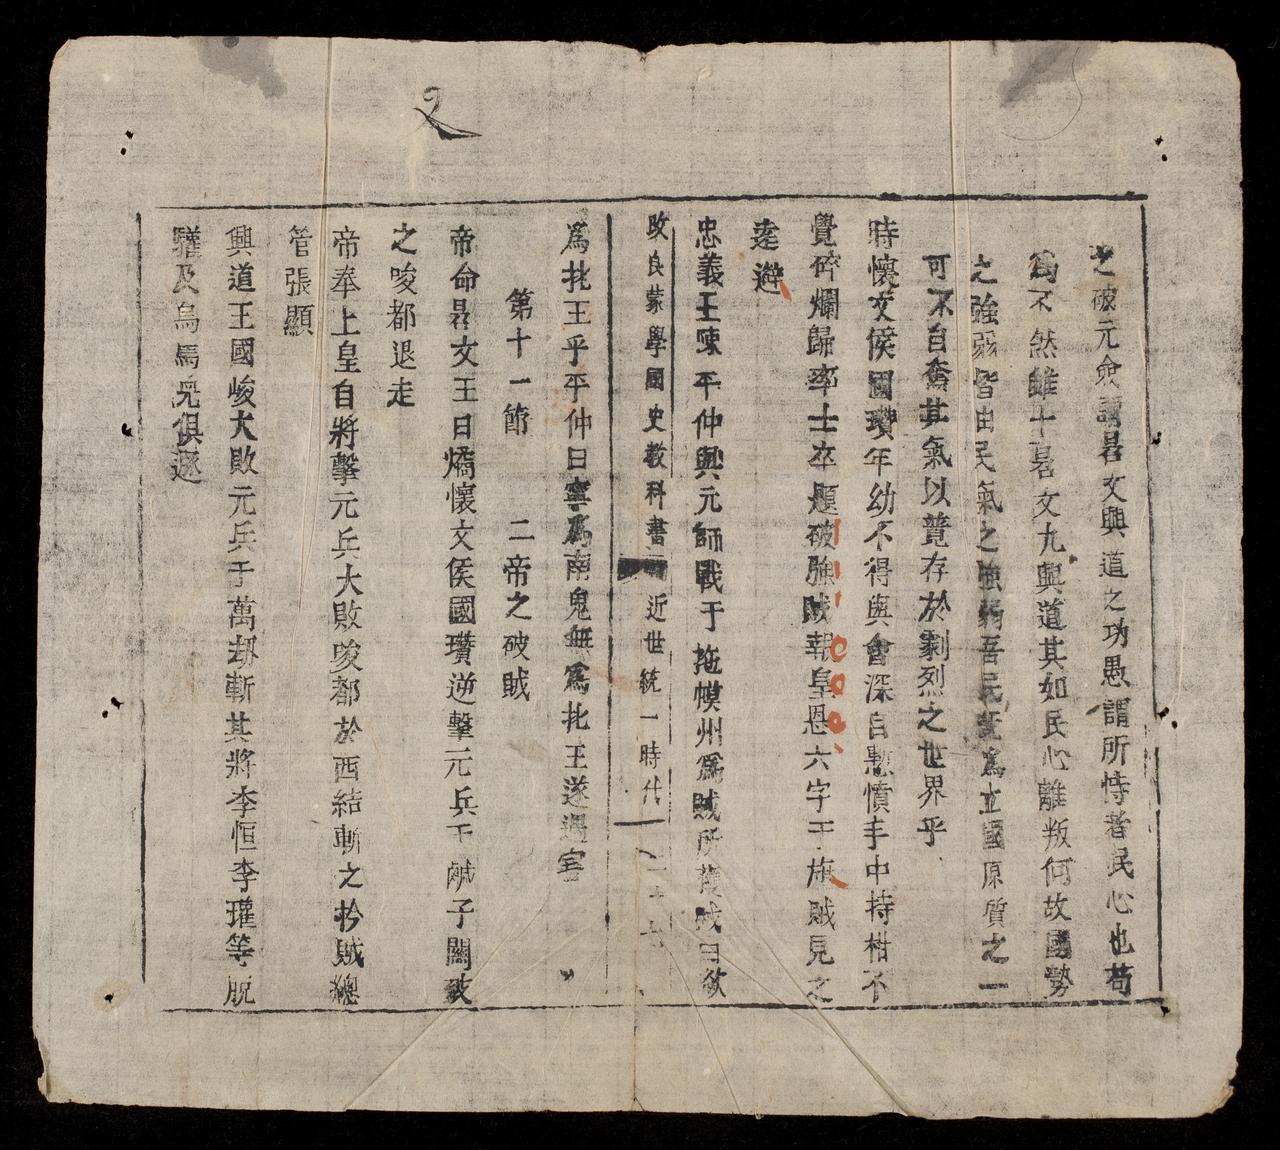 之破元僉謂晷文興道之功愚謂所恃者民心也苟
爲不然雖十晷文九興道其如民心離叛何故國勢
之強弱皆由民氣之強弱吾民旣爲立國原質之一
可不自奮其氣以競存於劇烈之世界乎
時懷文侯國瓚年幼不得與會深自慙憤手中持柑不
覺碎爛歸率士卒題破強賊報皇恩六字于旗賊見之
走避
忠義王陳平仲與元師戰于拖幙州爲賊所獲賊曰欲
改良蒙學國史教科書 近世統一時代 二十七
爲北王乎平仲曰寧爲南鬼無爲北王遂遇害
第十一節 二帝之破賊
帝命晷文王日燏懷文侯國瓚逆擊元兵于鹹子關破
之唆都退走
帝奉上皇自將擊元兵大敗唆都於西結斬之擒賊總
管張顯
興道王國峻大敗元兵于萬刼斬其將李恒李瓘等脫
驩及烏馬兒俱遁